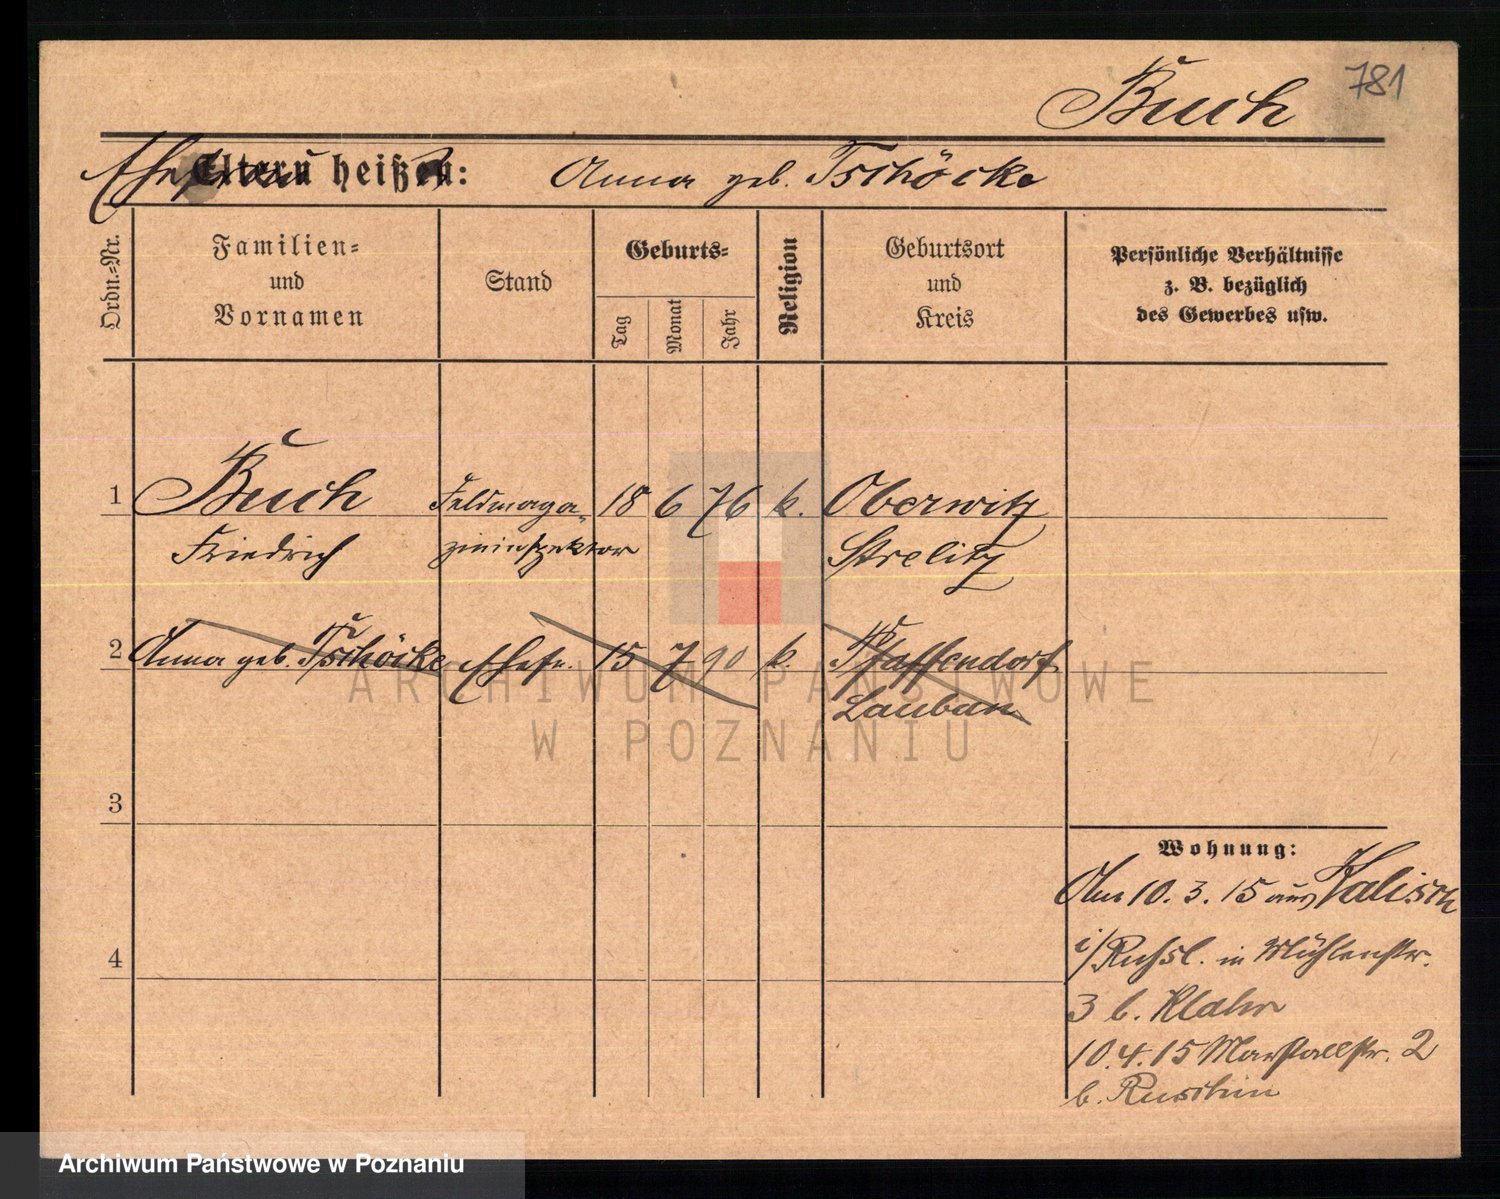 Buch
781
Ehefrau
Eltern heißen: Anna geb. Tschöcke
Ordn.=Nr.
Familien=
und
Vornamen
Stand
Geburts=
Tag
Monat
Jahr
Religion
Geburtsort
und
Kreis
Persönliche Verhältnisse
z. B. bezüglich
des Gewerbes usw.
1 Buch Feldmaga- 18 6 76 k. Oberwitz
Friedrich zininspektor Strelitz
2 Anna geb. Tschöcke Ehefr. 15 7 90 k. Pfaffendorf
Lauban
ARCHIWUM PAŃSTWOWE
W POZNANIU
3
4
Wohnung:
Am 10. 3. 15 aus Kalisch
i/Russl. in Mühlenstr.
3 b. Klahr
10.4.15 Marstallstr. 2
b. Ruschin
Archiwum Państwowe w Poznaniu